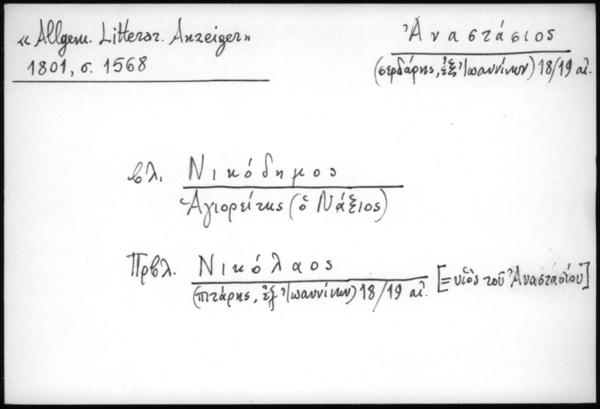 « Allgem. Litterar. Anzeiger»
1801, σ. 1568
Ἀναστάσιος
(σερδάρης, ἐξ Ἰωαννίνων) 18/19 αἰ.
βλ. Νικόδημος
Ἁγιορείτης (ὁ Νάξιος)
Πρβλ. Νικόλαος
(πιτάρης, ἐξ Ἰωαννίνων) 18/19 αἰ. [= υἱὸς τοῦ Ἀναστασίου]